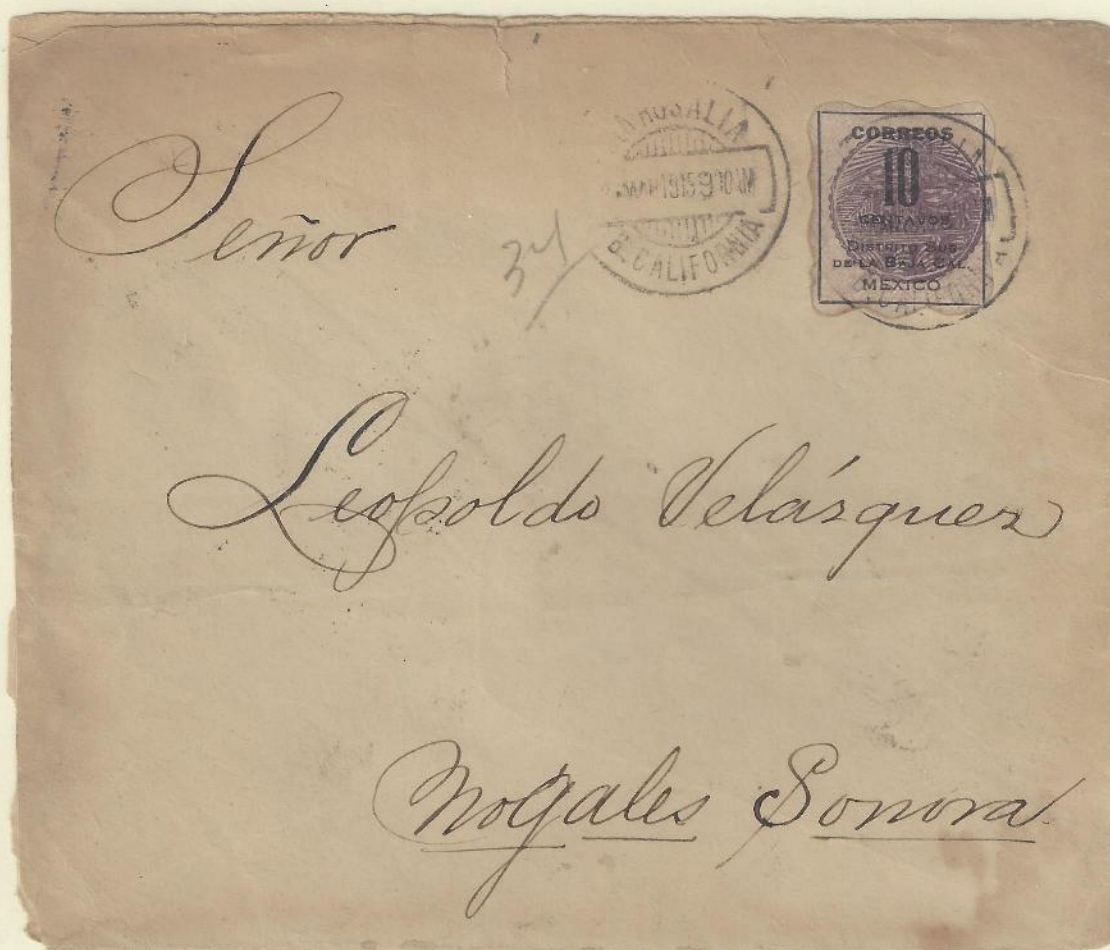 Señor
ROSALIA
B. CALIFORNIA
34
CORREOS
10
CENTAVOS
DISTRITO SUR
DE LA BAJA CAL.
MEXICO
Leopoldo Velásquez
Nogales Sonora